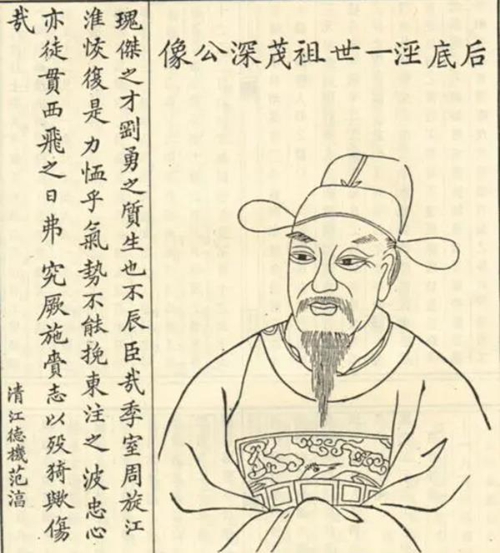 后底涇一世祖茂深公像
瑰傑之才劉勇之質生也不辰臣哉季室周旋江
淮恢復是力恤乎氣勢不能挽東注之波忠心
亦徒貫西飛之日弗究厥施賫志以歿猗歟傷
哉
清江德機范